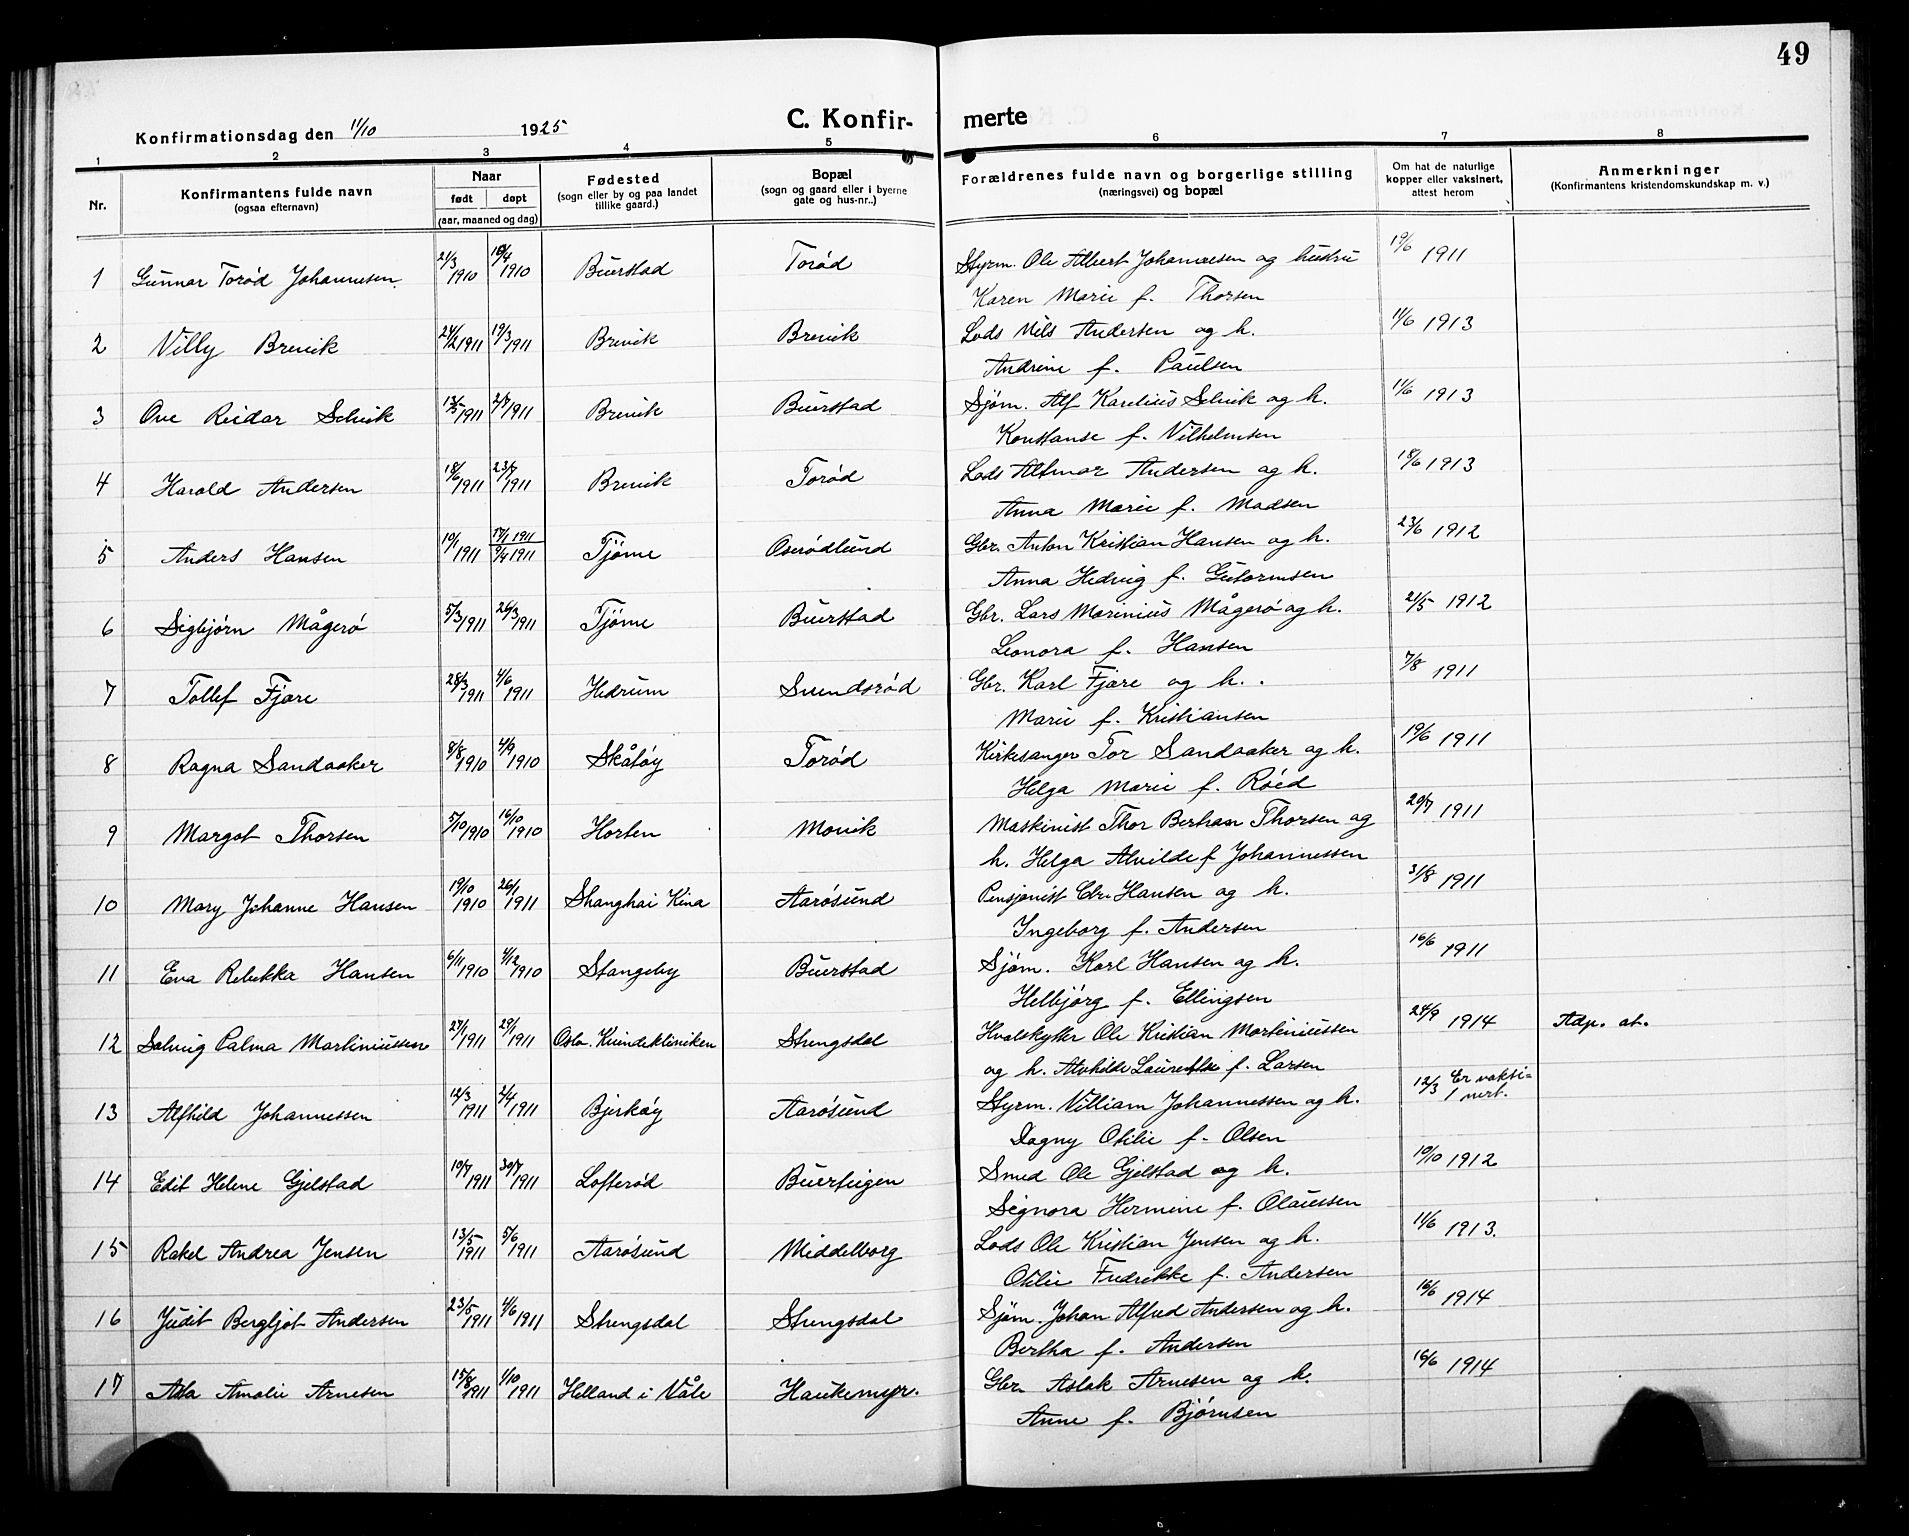 49
Konfirmationsdag den 11/10 1925 C. Konfirmerte
1 2 3 4 5 6 7 8
Nr. Konfirmantens fulde navn (ogsaa efternavn) Naar født døpt (aar, maaned og dag) Fødested (sogn eller by og paa landet tillike gaard.) Bopæl (sogn og gaard eller i byerne gate og hus-nr..) Forældrenes fulde navn og borgerlige stilling (næringsvei) og bopæl Om hat de naturlige kopper eller vaksinert, attest herom Anmerkninger (Konfirmantens kristendomskundskap m. v.)
1 Gunnar Torød Johannesen 21/3 1910 /4 1910 Buerstad Torød Styrm. Ole Albert Johannesen og hustru 19/6 1911
Karen Marie f. Thorsen
2 Villy Brevik 24/2 1911 19/3 1911 Brevik Brevik Lods Nils Andersen og h. 11/6 1913
Andrine f. Paulsen
3 Ove Reidar Selvik 13/5 1911 2/7 1911 Brevik Buerstad Sjøm. Alf Karelius Selvik og h. 11/6 1913
Konstanse f. Vilhelmsen
4 Harald Andersen 18/6 1911 23/7 1911 Brevik Torød Lods Altmar Andersen og h. 18/6 1913
Anna Marie f. Madsen
5 Anders Hansen 10/1 1911 17/1 1911 9/4 1911 Tjøme Oserødlund Gbr. Anton Kristian Hansen og h. 23/6 1912
Anna Hedvig f. Gutormsen
6 Sigbjørn Mågerø 5/3 1911 26/3 1911 Tjøme Buerstad Gbr. Lars Marinius Mågerø og h. 21/5 1912
Leonora f. Hansen
7 Tollef Fjære 28/3 1911 4/6 1911 Hedrum Svendsrød Gbr. Karl Fjære og h. 7/8 1911
Marie f. Kristiansen
8 Ragna Sandaaker 8/8 1910 4/9 1910 Skåtøy Torød Kirkesanger Tor Sandaaker og h. 19/6 1911
Helga Marie f. Røed
9 Margot Thorsen 5/10 1910 16/10 1910 Horten Movik Maskinist Thor Berhan Thorsen og 20/7 1911
h. Helga Alvilde f Johannessen
10 Mary Johanne Hansen 19/10 1910 26/1 1911 Shanghai Kina Aarøsund Pensjonist Chr. Hansen og h. 31/8 1911
Ingeborg f. Andersen
11 Eva Rebekka Hansen 6/11 1910 4/12 1910 Stangeby Buerstad Sjøm. Karl Hansen og h. 16/6 1911
Helbjørg f. Ellingsen
12 Solveig Palma Martiniussen 27/1 1911 29/1 1911 Oslo. Kvindeklinikken Strengsdal Hvalskytter Ole Kristian Martiniussen 24/9 1914 Adp. at.
og h. Alvhilde Laurentse f. Larsen
13 Alfhild Johannessen 12/3 1911 2/4 1911 Bjerkøy Aarøsund Styrm. Villiam Johannessen og h. 12/3 Er vaksi-
nert.
Dagny Otilie f. Olsen
14 Edit Helene Gjelstad 10/7 1911 30/7 1911 Lofterød Buerteigen Smed Ole Gjelstad og h. 10/10 1912
Signora Hermine f. Olaussen
15 Rakel Andrea Jensen 13/5 1911 5/6 1911 Aarøsund Middelborg Lods Ole Kristian Jensen og h. 11/6 1913.
Otilie Fredrikke f. Andersen
16 Judit Bergljot Andersen 23/5 1911 4/6 1911 Strengsdal Strengsdal Sjøm. Johan Alfred Andersen og h. 16/6 1914
Bertha f. Andersen
17 Asla Amalie Arnesen 15/8 1911 1/10 1911 Helland i Våle Haukemyr. Gbr. Aslak Arnesen og h. 16/6 1914
Anne f. Bjørnsen